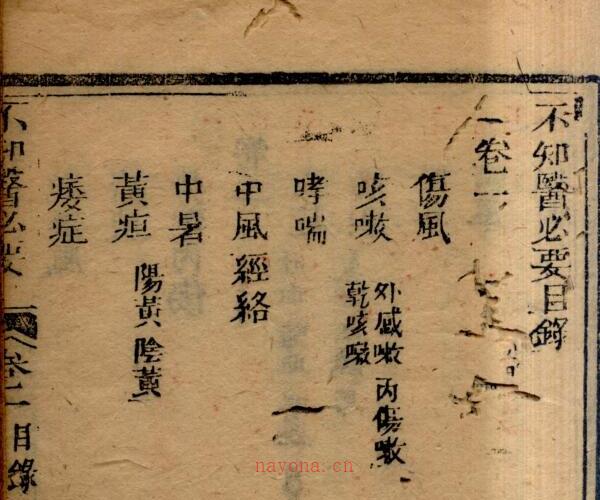 不知醫必要目錄
卷一
傷風
咳嗽 外感嗽 內傷嗽
乾咳嗽
哮喘
中風 經絡
中暑
黃疸 陽黃 陰黃
痿症
不知醫必要
卷一 目錄
nayona.cn